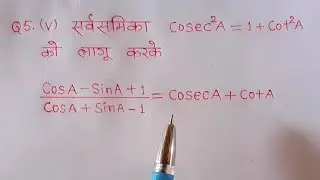 Q5. (V) सर्वसमिका Cosec²A = 1 + Cot²A
को लागू करके
CosA – SinA + 1 / CosA + SinA – 1 = CosecA + CotA